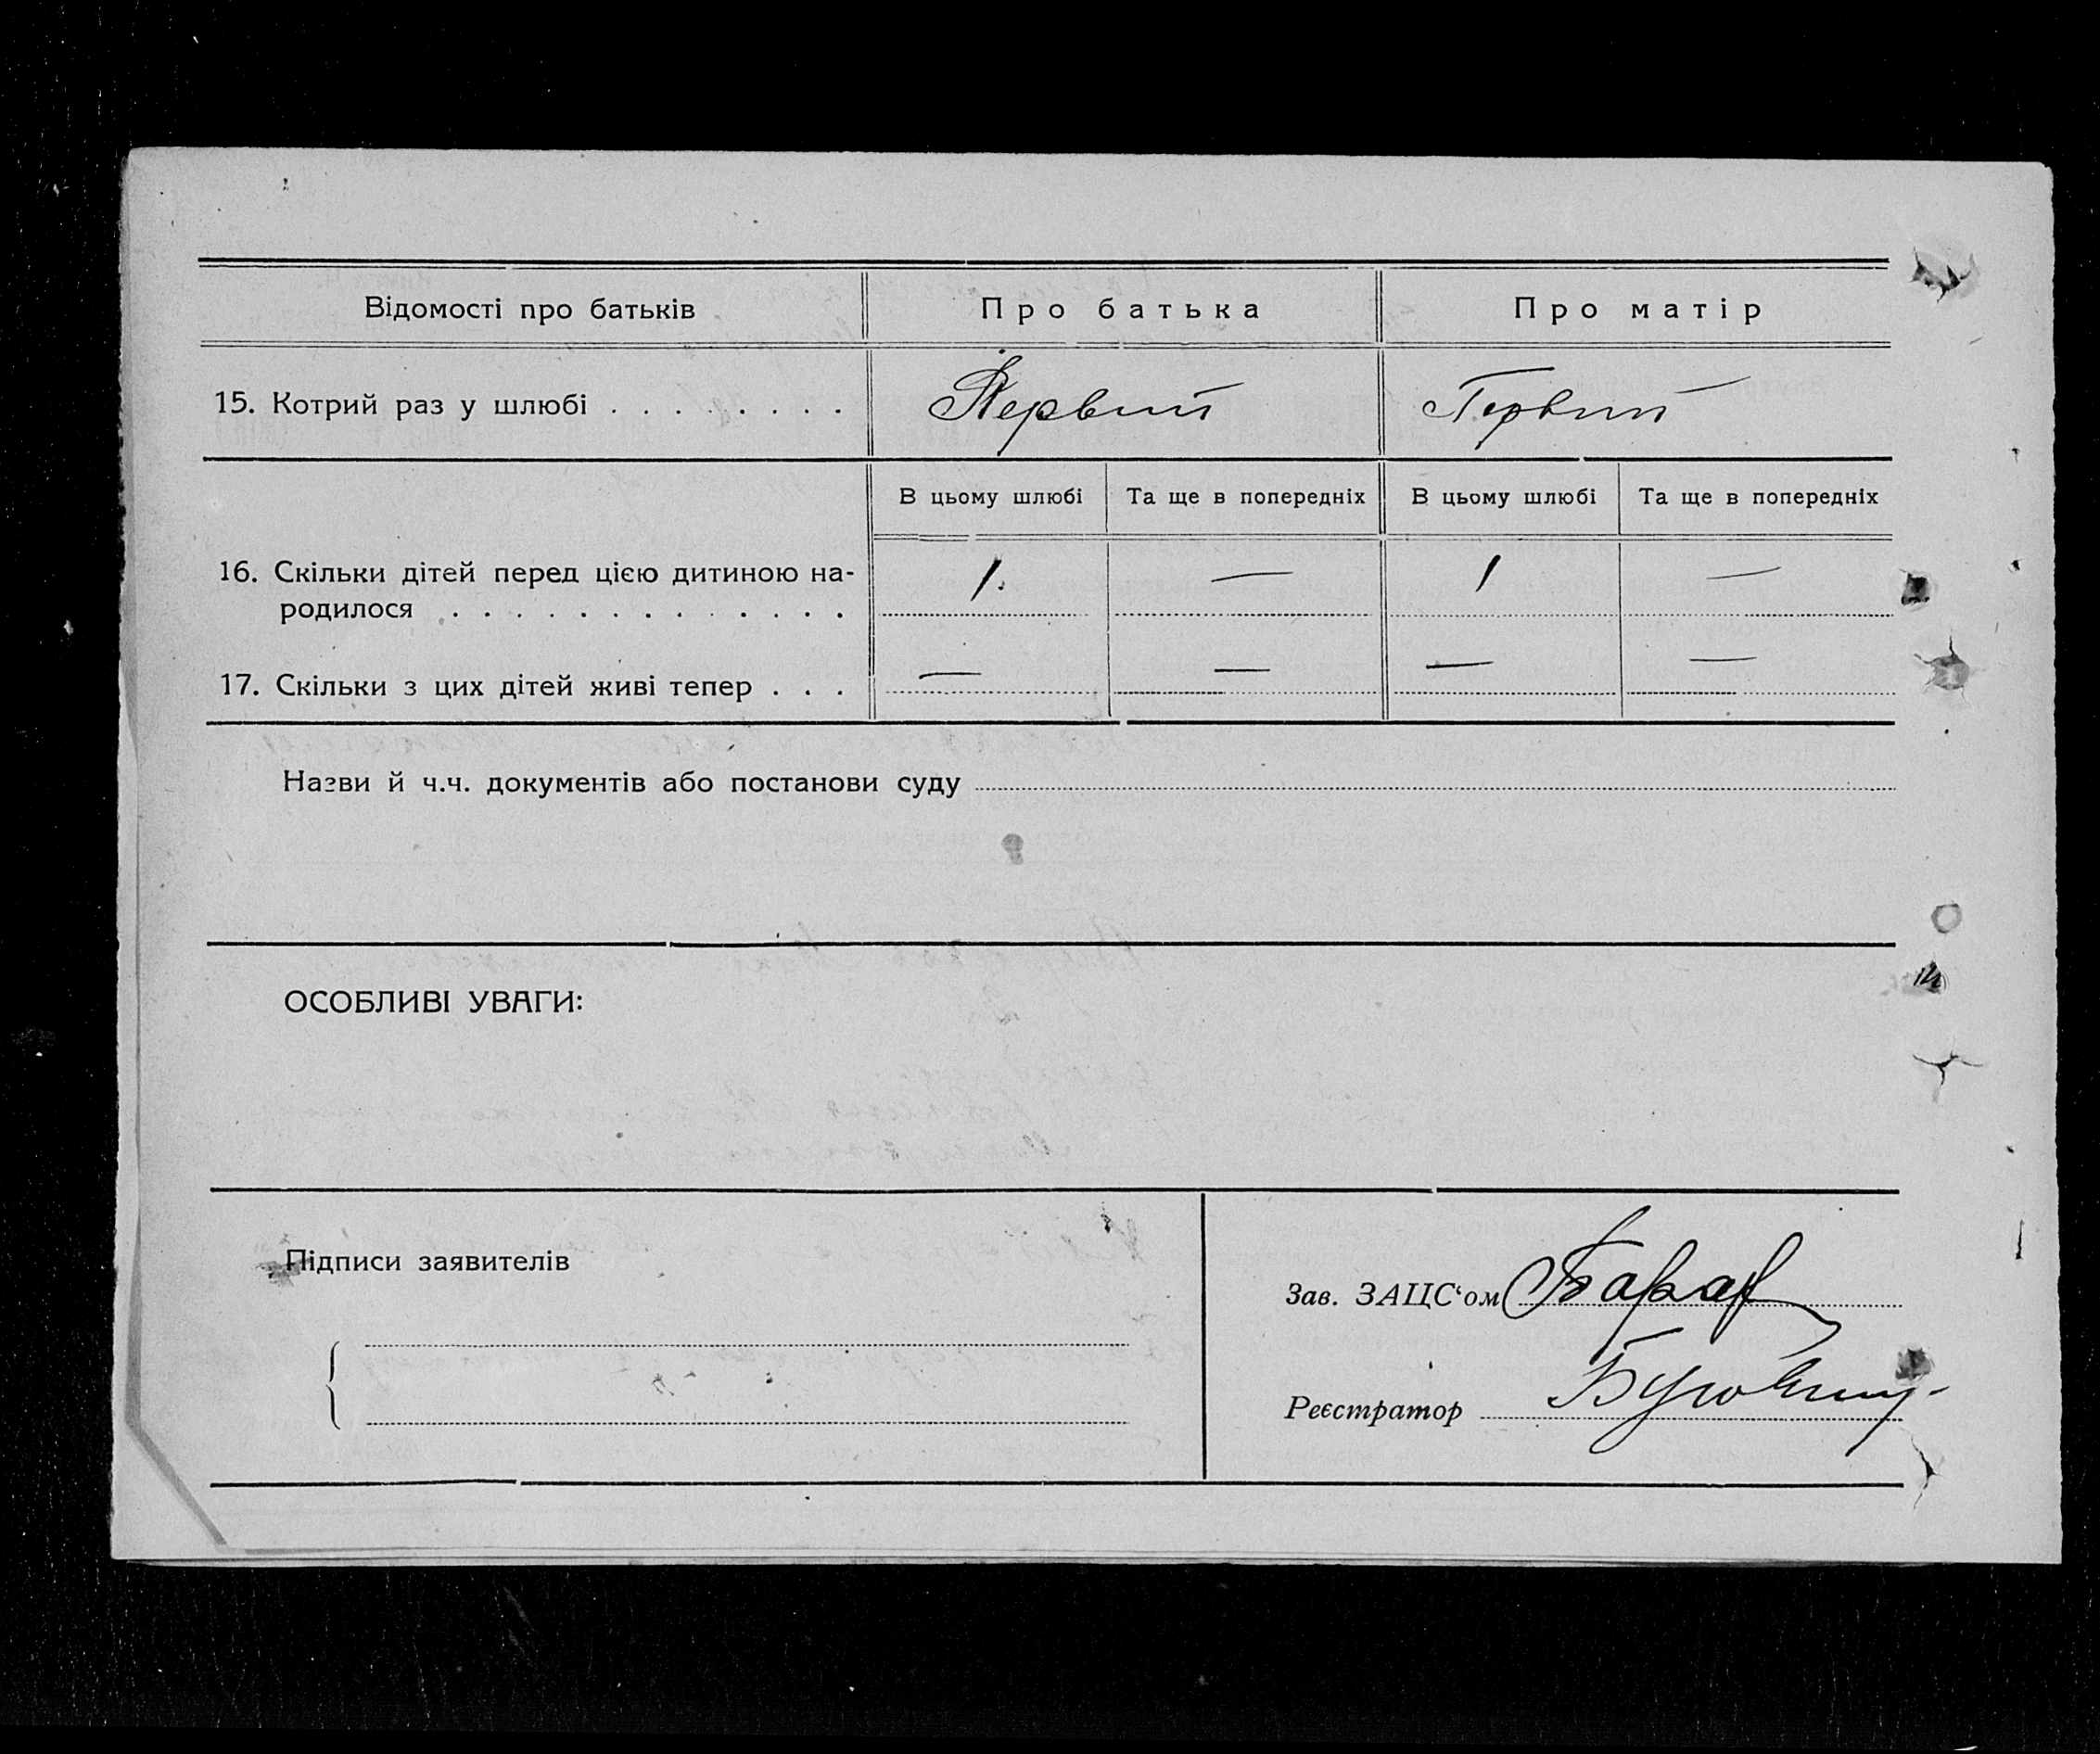 Відомості про батьків Про батька Про матір
15. Котрий раз у шлюбі . . . . . . . . Первий Первий
В цьому шлюбі Та ще в попередніх В цьому шлюбі Та ще в попередніх
16. Скільки дітей перед цією дитиною на- 1. — 1 —
родилося . . . . . . . . . . . . .
17. Скільки з цих дітей живі тепер . . . — — — —
Назви й ч.ч. документів або постанови суду
ОСОБЛИВІ УВАГИ:
Підписи заявителів
Зав. ЗАЦС‘ом
Реєстратор